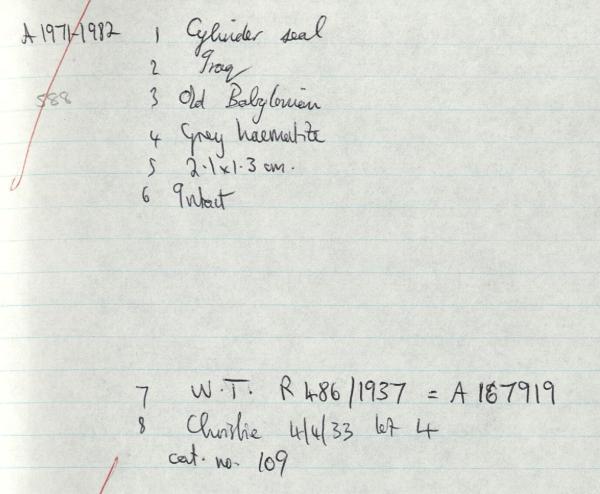 A 1971-1982 1 Cylinder seal
2 Iraq
588 3 Old Babylonian
4 Grey haematite
5 2.1x1.3 cm.
6 Intact
7 W.T. R 486/1937 = A 187919
8 Christie 4/4/33 lot 4
cat. no. 109